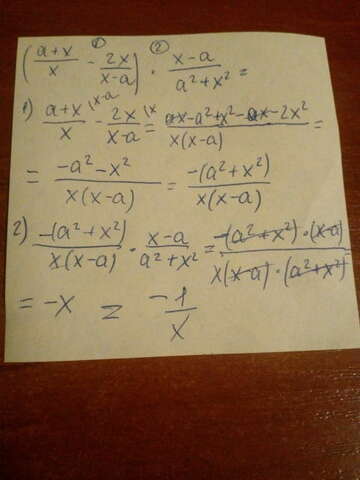 ((a+x)/x - 2x/(x-a)) · (x-a)/(a²+x²) =
1) (a+x)/x - 2x/(x-a) = (ax-a²+x²-ax-2x²)/(x(x-a)) =
= (-a²-x²)/(x(x-a)) = (-(a²+x²))/(x(x-a))
2) (-(a²+x²))/(x(x-a)) · (x-a)/(a²+x²) = (-(a²+x²)·(x-a))/(x(x-a)·(a²+x²))
= -x = -1/x